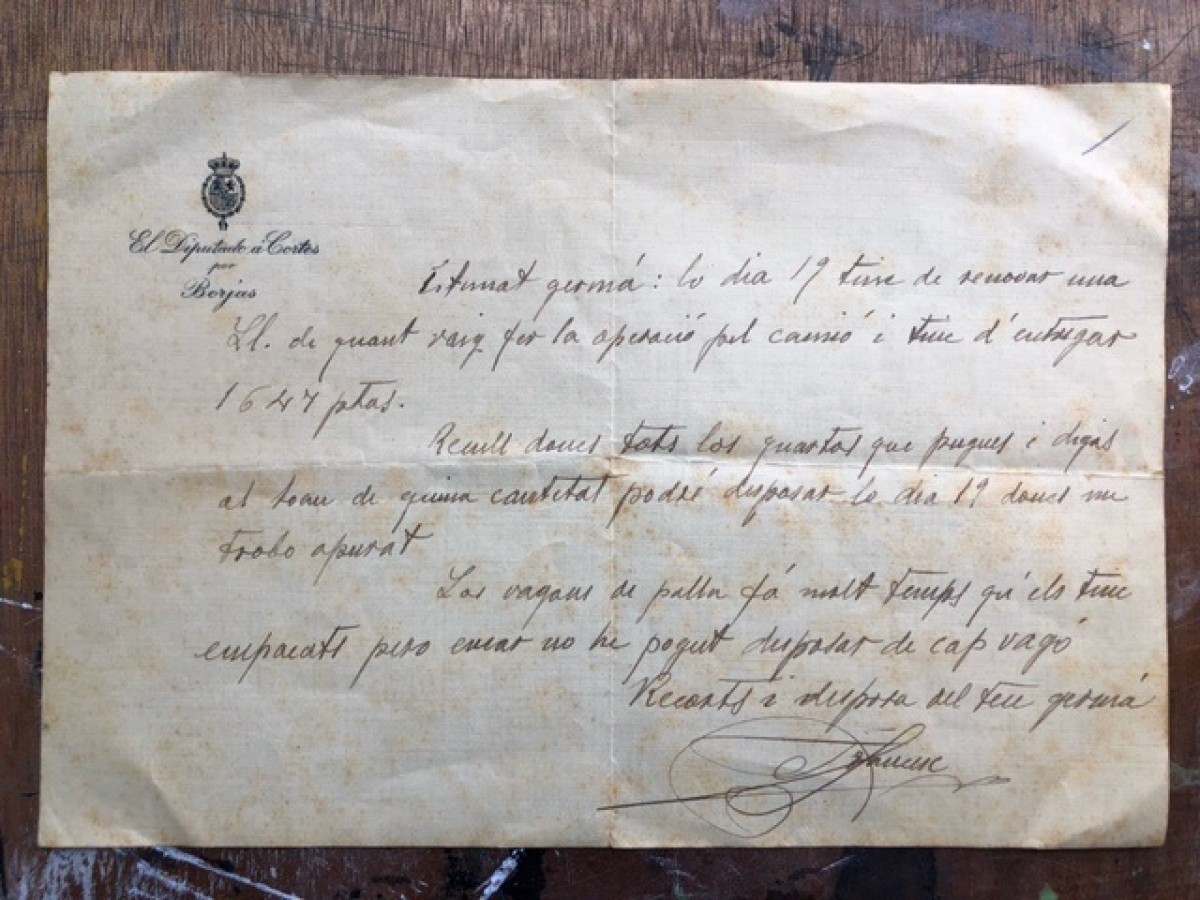 El Diputado á Cortes
por
Borjas
Estimat germá: lo dia 19 tinc de renovar una
Ll. de quant vaig fer la operació pel camió i tinc d'entregar
1647 ptas.
Recull doncs tots los quartos que pugues i digas
al Joan de quina cantitat podré disposar lo dia 19 doncs me
trobo apurat
Los vagons de palla fá molt temps qu'els tinc
empacats pero encar no he pogut disposar de cap vagó
Recorts i disposa del teu germá